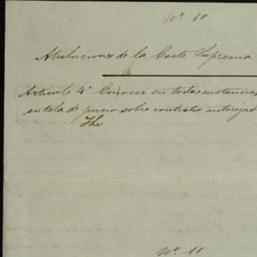 Nº 10
Atribuciones de la Corte Suprema
Articulo 4º Conocer en todas instancias
en tela de juicio sobre contratos
The
Nº 11